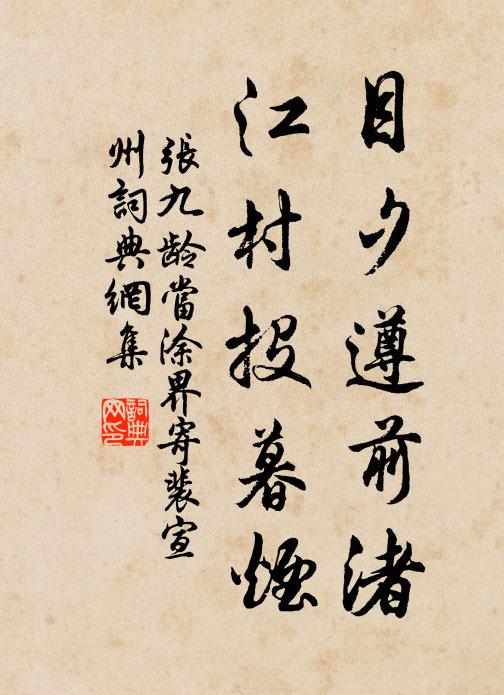 目夕遵前渚
江村投暮煙
張九龄當涂界寄裴宣
州詞典網集
詞典网印